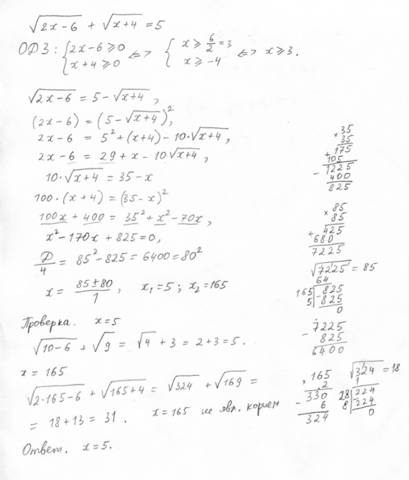 √(2x-6) + √(x+4) = 5
ОДЗ: { 2x-6 ≥ 0 x+4 ≥ 0 <=> { x ≥ 6/2 = 3 x ≥ -4 <=> x ≥ 3.
√(2x-6) = 5 - √(x+4),
(2x-6) = (5 - √(x+4))²,
2x-6 = 5² + (x+4) - 10·√(x+4),
2x-6 = 29 + x - 10√(x+4),
10·√(x+4) = 35-x
100·(x+4) = (35-x)²
100x + 400 = 35² + x² - 70x,
x² - 170x + 825 = 0,
D/4 = 85² - 825 = 6400 = 80²
x = (85±80)/1, x₁ = 5; x₂ = 165
Проверка. x = 5
√(10-6) + √9 = √4 + 3 = 2+3 = 5.
x = 165
√(2·165-6) + √(165+4) = √324 + √169 =
= 18+13 = 31. x = 165 не явл. корнем
Ответ. x = 5.
× 35
35
175
+ 105
1225
- 400
825
× 85
85
425
+ 680
7225
√7225 = 85
64
165 | 825
5 | 825
0
- 7225
825
6400
× 165
2
330
- 6
324
√324 = 18
1
28 | 224
8 | 224
0